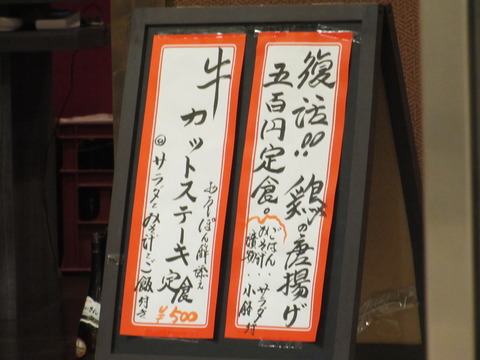 復活!! 鶏の唐揚げ
五百円定食。
ごはん・サラダ
みそ汁・小鉢付
漬物
牛カットステーキ定食
おろしぽん酢添え
サラダとみそ汁とご飯付き
¥500